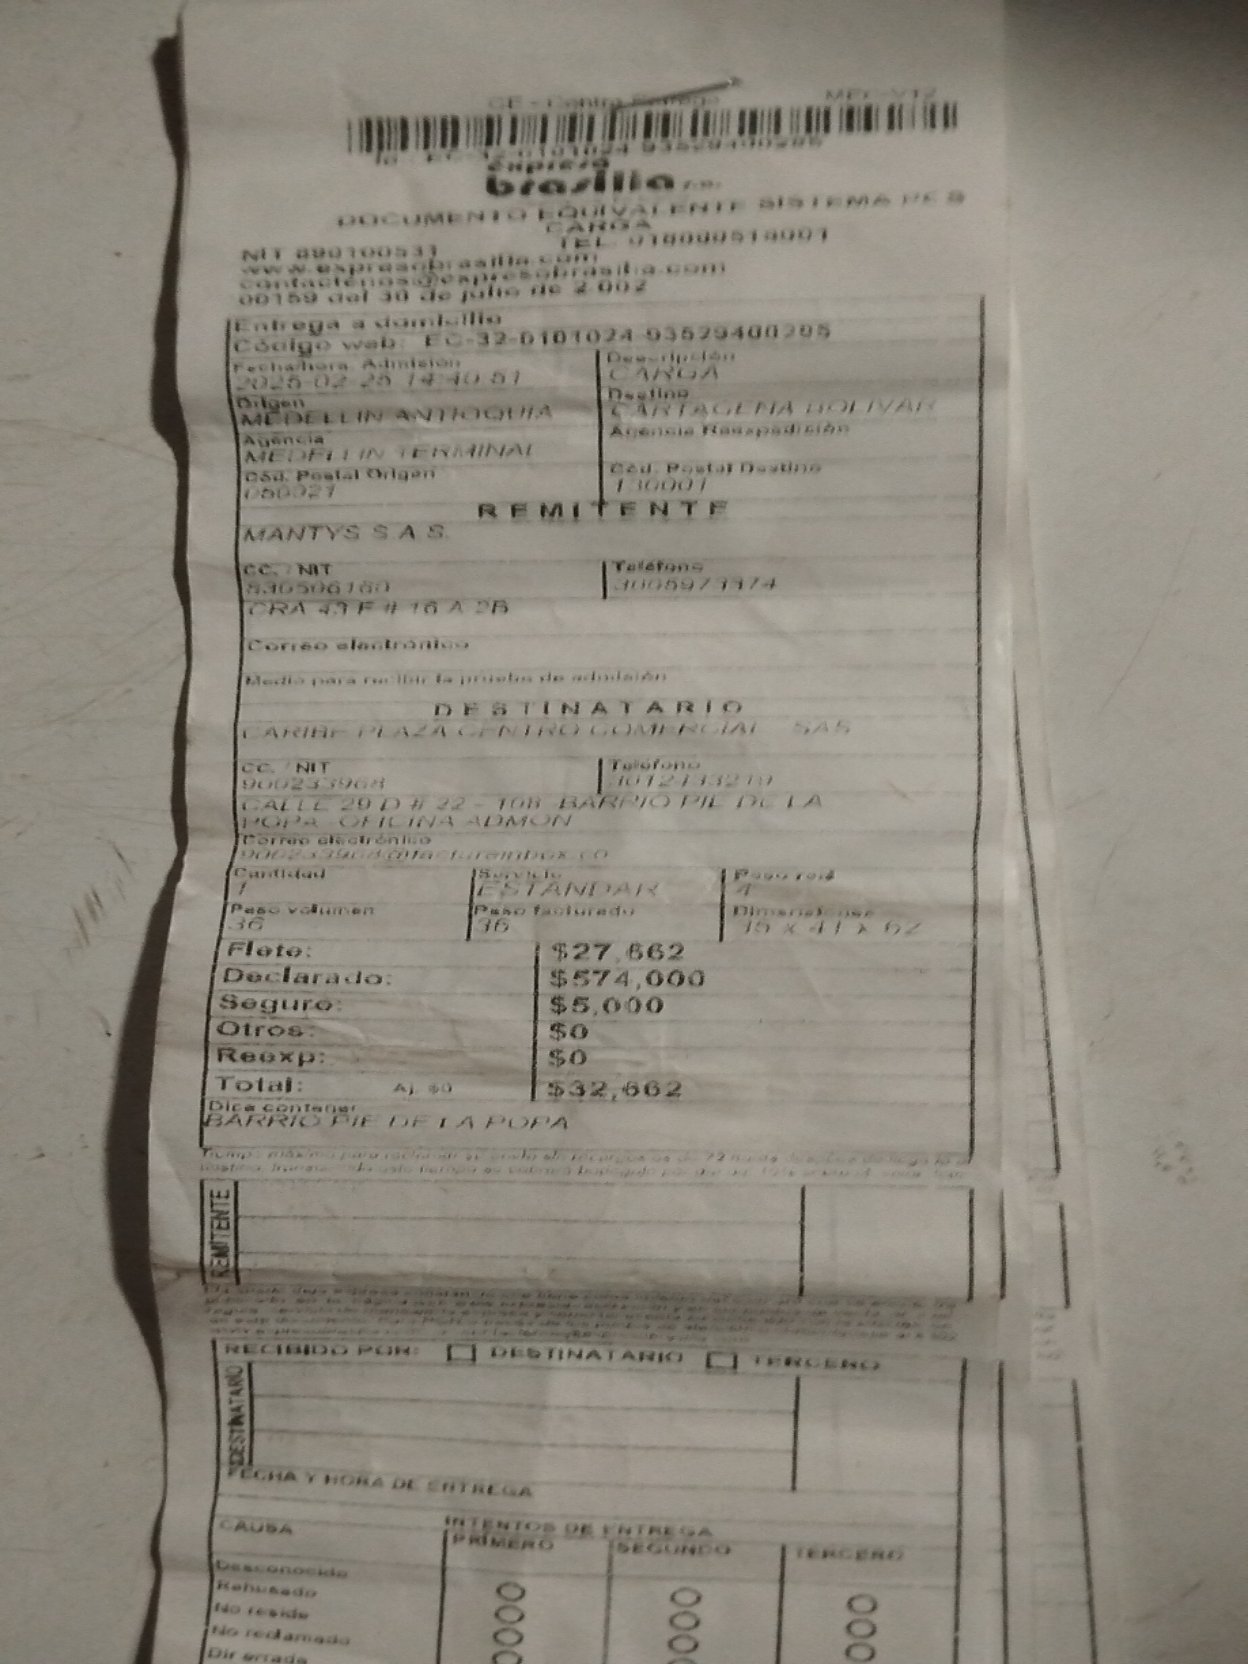 CE - Contra Entrega
expreso
brasilia s.a.
DOCUMENTO EQUIVALENTE SISTEMA P.E.S
CARGA
NIT 890100531
TEL.
www.expresobrasilia.com
contactenos@expresobrasilia.com
00159 del 30 de julio de 2.002
Entrega a domicilio
Código web: EC-32-0101024-93529400205
Fecha/hora Admisión
2025-02-25 14:40:51
Descripción
CARGA
Origen
MEDELLIN ANTIOQUIA
Destino
CARTAGENA BOLIVAR
Agencia
MEDELLIN TERMINAL
Agencia Reexpedición
Cód. Postal Origen
050021
Cód. Postal Destino
130001
REMITENTE
MANTYS S.A.S.
CC. / NIT
830506160
Teléfono
CRA 43 F # 16 A 2B
Correo electrónico
Medio para recibir la prueba de admisión
DESTINATARIO
CARIBE PLAZA CENTRO COMERCIAL SAS
CC. / NIT
900233968
Teléfono
CALLE 29 D # 22 - 108 BARRIO PIE DE LA
POPA OFICINA ADMON
Correo electrónico
900233968@factureinbox.co
Cantidad
1
Servicio
ESTANDAR
Peso real
4
Peso volumen
36
Peso facturado
36
Dimensiones
35 x 41 x 62
Flete: $27,662
Declarado: $574,000
Seguro: $5,000
Otros: $0
Reexp: $0
Total: Aj. $0 $32,662
Dice contener
BARRIO PIE DE LA POPA
REMITENTE
RECIBIDO POR: DESTINATARIO TERCERO
DESTINATARIO
FECHA Y HORA DE ENTREGA
CAUSA
INTENTOS DE ENTREGA
PRIMERO SEGUNDO TERCERO
Desconocido
Rehusado
No reside
No reclamado
Dir errada